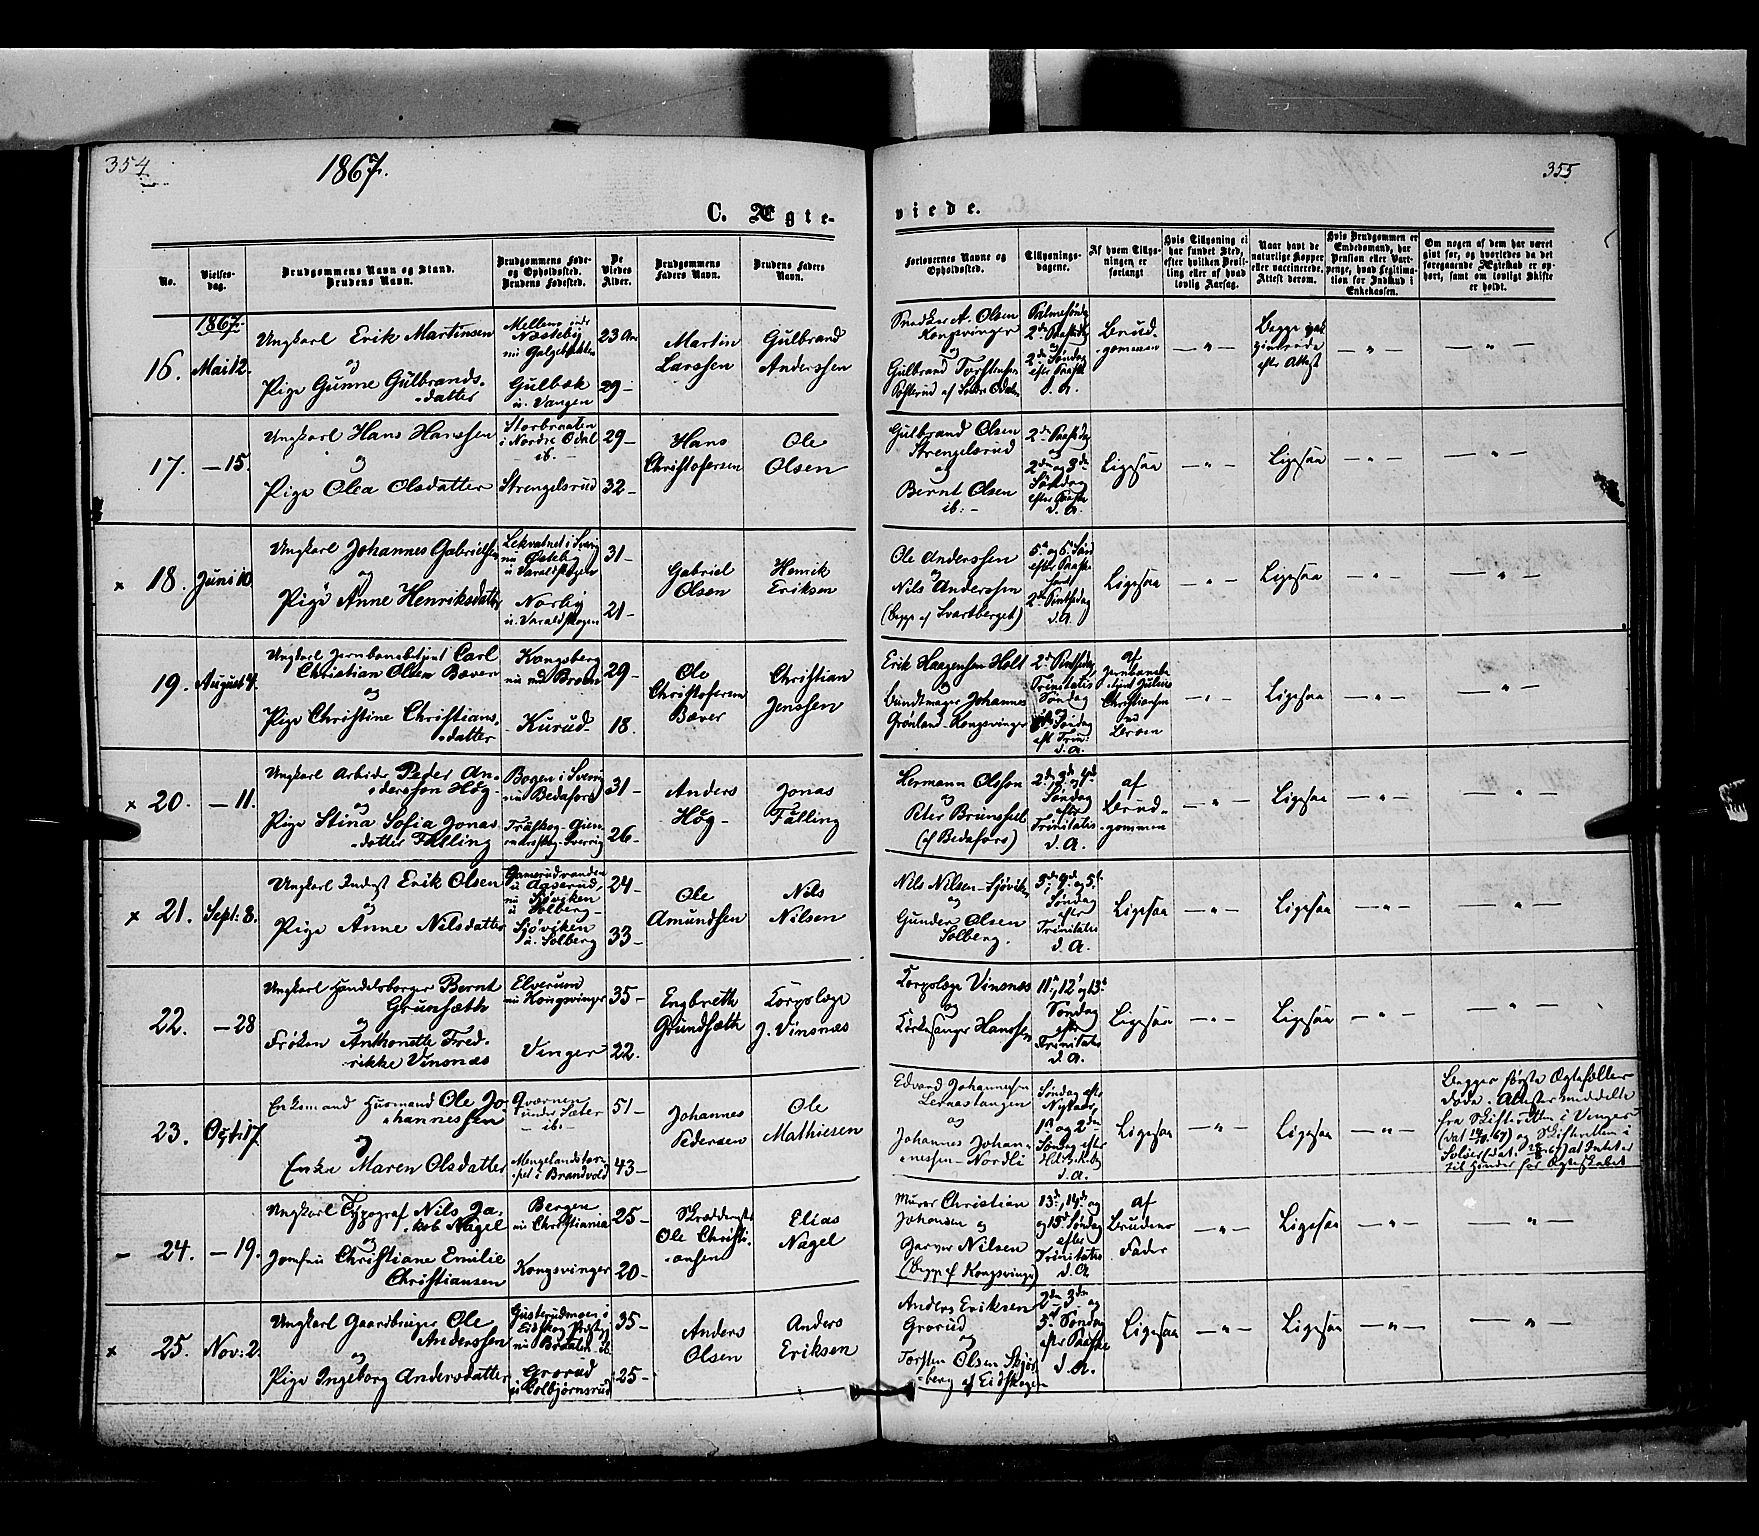 354
1867.
355
C. Ægte-
viede.
No.
Vielses-
dag.
Brudgommens Navn og Stand.
Brudens Navn.
Brudgommens Føde-
og Opholdssted.
Brudens Fødested.
De
Viedes
Alder.
Brudgommens
Faders Navn.
Brudens Faders
Navn.
Forlovernes Navne og
Opholdssted.
Tillysnings-
dagene.
Af hvem Tillys-
ningen er
forlangt
Hvis Tillysning ei
har fundet Sted,
efter hvilken Bevil-
ling eller af hvad
lovlig Aarsag.
Naar havt de
naturlige Kopper
eller vaccinerede.
Attest derom.
Hvis Brudgommen er
Embedsmand, har
Pension eller Vart-
penge, hvad Legitima-
tion for Indskud i
Enkekassen.
Om nogen af dem har været
givt før, og hvorledes da det
foregaaende Ægteskab er op-
hørt, samt om lovligt Skifte
er holdt.
1867.
16. Mai 12.
Ungkarl Erik Martinsen
og
Pige Gunne Gulbrands-
datter
Gulbæk
u. Vangen
23 Aar
29 -
Martin
Larssen
Gulbrand
Anderssen
Snedker A. Olsen
Kongsvinger
og
Gulbrand Torstensen
af Søndre Odalen
Palmesøndag
2den Paaskedag
og
2den Søndag
efter Paaske
d. A.
Brud-
gommen
- " -
Begge
efter Attest
- " -
- " -
17. - 15.
Ungkarl Hans Hanssen
og
Pige Olea Olsdatter
Storbraaten
i Nordre Odal
ib. -
Strengelsrud
29 -
32 -
Hans
Christofersen
Ole
Olsen
Gulbrand Olsen
Strengelsrud
og
Bernt Olsen
ib: -
2den Paaskedag
og
2den og 3den
Søndag
efter Paaske
d. A.
Ligesaa
- " -
Ligesaa
- " -
- " -
x 18. Juni 10
Ungkarl Johannes Gabrielsen
og
Pige Anne Henriksdatter
Lekvatnet i Sverig
nu Østeby
u. Varaldskogen
Norby
u. Varaldskogen
31 -
21 -
Gabriel
Olsen
Henrik
Eriksen
Ole Anderssen
og
Nils Anderssen
(begge af Svartberget)
5te og 6te Sønd
efter Paaske
samt
2den Pintsedag
d. A.
Ligesaa
- " -
Ligesaa
- " -
- " -
19. August 4.
Ungkarl Jernbanebetjent Carl
Christian Olsen Bæver
og
Pige Christine Christians-
datter
Kongsberg
nu ved Broen
- Kurud -
29 -
18.
Ole
Christofersen
Bæver
Christian
Jenssen
Erik Haagensen Holt
og
Bundtmager Johannes
Grønland - Kongsvinger
2den Pintsedag
Trinitatis
Søndag
og
Søndag
eft Trin:
d. A.
af
Jernbanebe-
tjent Julius
Christiansen
ved
Broen
- " -
Ligesaa
- " -
- " -
x 20. - 11.
Ungkarl Arbeider Peder An-
dersson Hög -
og
Pige Stina Sofia Jonas-
datter Fälling
Bogen i Sverig
nu Bedafors
31 -
26 -
Anders
Hög -
Jonas
Fälling
Hermann Olsson
og
Peter Brunsell
(af Bedafors)
2den, 3die og 4de
Søndag
efter
Trinitatis
d. A.
af
Brud-
gommen
- " -
Ligesaa
- " -
- " -
x 21. Sept: 8.
Ungkarl Inderst Erik Olsen
og
Pige Anne Nilsdatter
u Aaserud,
nu Sjøviken
u Solberg -
Sjøviken
u. Solberg
24 -
33 -
Ole
Amundsen
Nils
Nilsen
Nils Nilsen - Sjøviken
og
Gunder Olsen
Solberg.
Søndag
efter
Trinitatis
d. A.
Ligesaa
- " -
Ligesaa
- " -
- " -
22. - 28
Ungkarl Handelsborger Bernt
Grunsæth
og
Frøken Anthonette Fred-
rikke Vinsnæs
Elverum
nu Kongsvinger
Vinger
35 -
22.
Engbreth
Grundsæth
Corpslæge
J. Vinsnæs
Corpslæge Vinsnæs
og
Kirkesanger Hanssen
11te, 12te og 13de
Søndag
efter
Trinitatis
d. A.
Ligesaa
- " -
Ligesaa
- " -
- " -
23. Oct: 17.
Enkemand Husmand Ole Jo-
hannessen
og
Enke Maren Olsdatter
Qværnen
under Sæter
ib. -
Mengelandstor-
pet i Brandvold
51 -
43 -
Johannes
Pedersen
Ole
Mathiesen
Edvard Johannesen
Lernestangen
og
Johannes Johan-
nessen - Nordli
Søndag efter
Nytaar,
1ste og 2den
Søndag efter
Hel: 3 K: dag
d. A.
Ligesaa
- " -
Ligesaa
- " -
Begges første Ægtefæller
døde. Attester meddelte
fra Skifteretten i Vinger
og Skifteretten i
Solør at Intet er
til Hinder for Ægteskabet
- 24. - 19.
Ungkarl Typograf Nils Ja-
kob Nagel
og
Jomfru Christiane Emilie
Christiansen
Bergen
nu Christiania
Kongsvinger
25 -
20 -
Ole Christi-
ansen
Elias
Nagel
Murer Christian
Johansen og
Garver Nilsen
(begge af Kongsvinger)
13de, 14de og
og 15de Søndag
efter
Trinitatis
d. A.
af
Brudens
Fader
- " -
Ligesaa
- " -
- " -
x 25. Nov: 2.
Ungkarl Gaardbruger Ole
Anderssen
og
Pige Ingeborg Andersdatter
Gusterudmoen i
Eidskog Præstegj
nu Braaten ib.
Grorud
u Kolbjørnsrud
35 -
25 -
Anders
Olsen
Anders
Eriksen
Anders Eriksen
Grorud
og
Torsten Olsen Skjøs-
berg af Eidskogen
2den, 3den og
Søndag
efter Paaske
d. A.
Ligesaa
- " -
Ligesaa
- " -
- " -